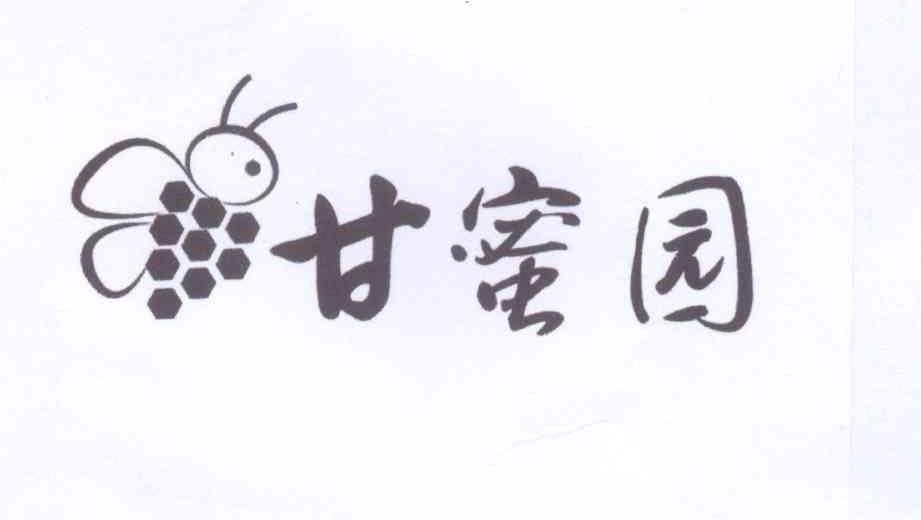 甘蜜园